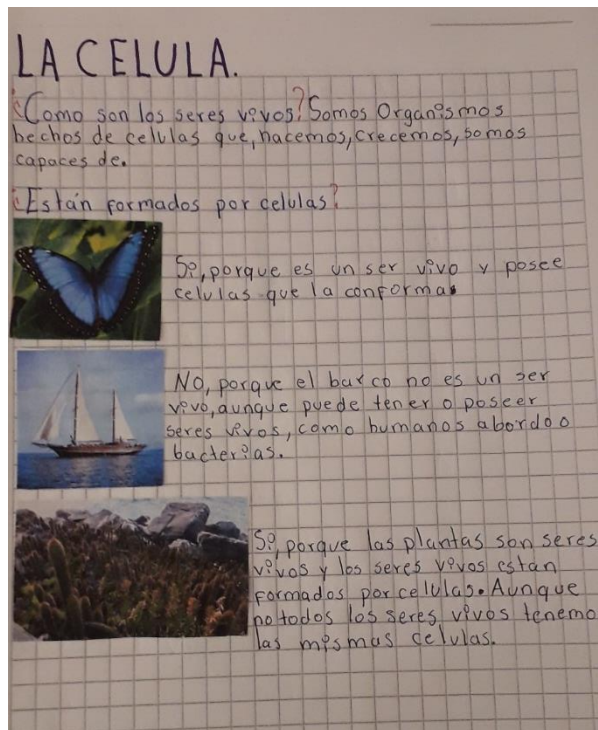 LA CELULA.
¿Como son los seres vivos? Somos Organismos
hechos de celulas que, nacemos, crecemos, somos
capaces de.
¿Están formados por celulas?
Si, porque es un ser vivo y posee
celulas que la conforma
No, porque el barco no es un ser
vivo, aunque puede tener o poseer
seres vivos, como humanos abordo o
bacterias.
Si, porque las plantas son seres
vivos y los seres vivos estan
formados por celulas. Aunque
no todos los seres vivos tenemo
las mismas celulas.